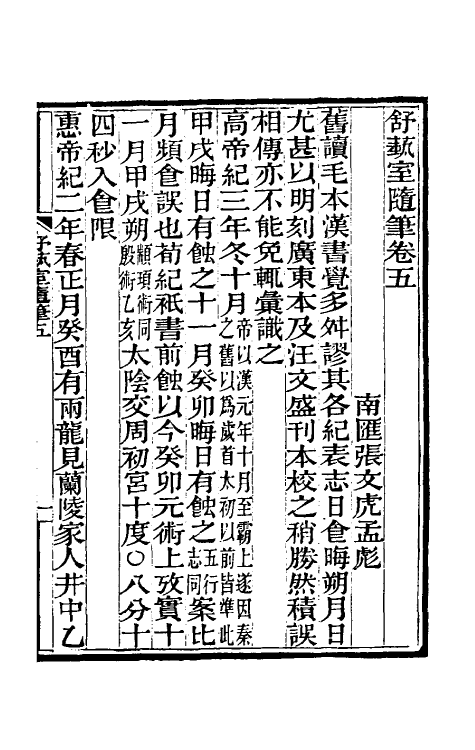 舒藝室隨筆卷五
南匯張文虎孟彪
舊讀毛本漢書覺多舛謬其各紀表志日食晦朔月日
尤甚以明刻廣東本及汪文盛刊本校之稍勝然積誤
相傳亦不能免輒彙識之
高帝紀三年冬十月帝以漢元年十月至霸上遂因秦之舊以爲歲首太初以前皆準此
甲戌晦日有蝕之十一月癸卯晦日有蝕之五行志同案比
月頻食誤也荀紀祇書前蝕以今癸卯元術上攷實十
一月甲戌朔顓頊術同殷術乙亥太陰交周初宮十度〇八分十
四秒入食限
惠帝紀二年春正月癸酉有兩龍見蘭陵家人井中乙
舒藝室隨筆五
一